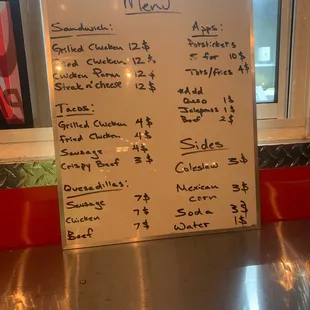 Menu
Sandwich:
Grilled Chicken 12$
Fried Chicken 12
Chicken Parm 12
Steak n' cheese 12$
Tacos:
Grilled Chicken 4$
Fried Chicken 4$
Sausage 4$
Crispy Beef 3$
Quesadillas:
Sausage 7$
Chicken 7$
Beef 7$
Apps:
Potstickers
5 for 10$
Tots/fries 4$
Add
Queso 1$
Jalapenos 1$
Beef 2$
Sides
Coleslaw 3$
Mexican 3$
corn
Soda 3$
Water 1$